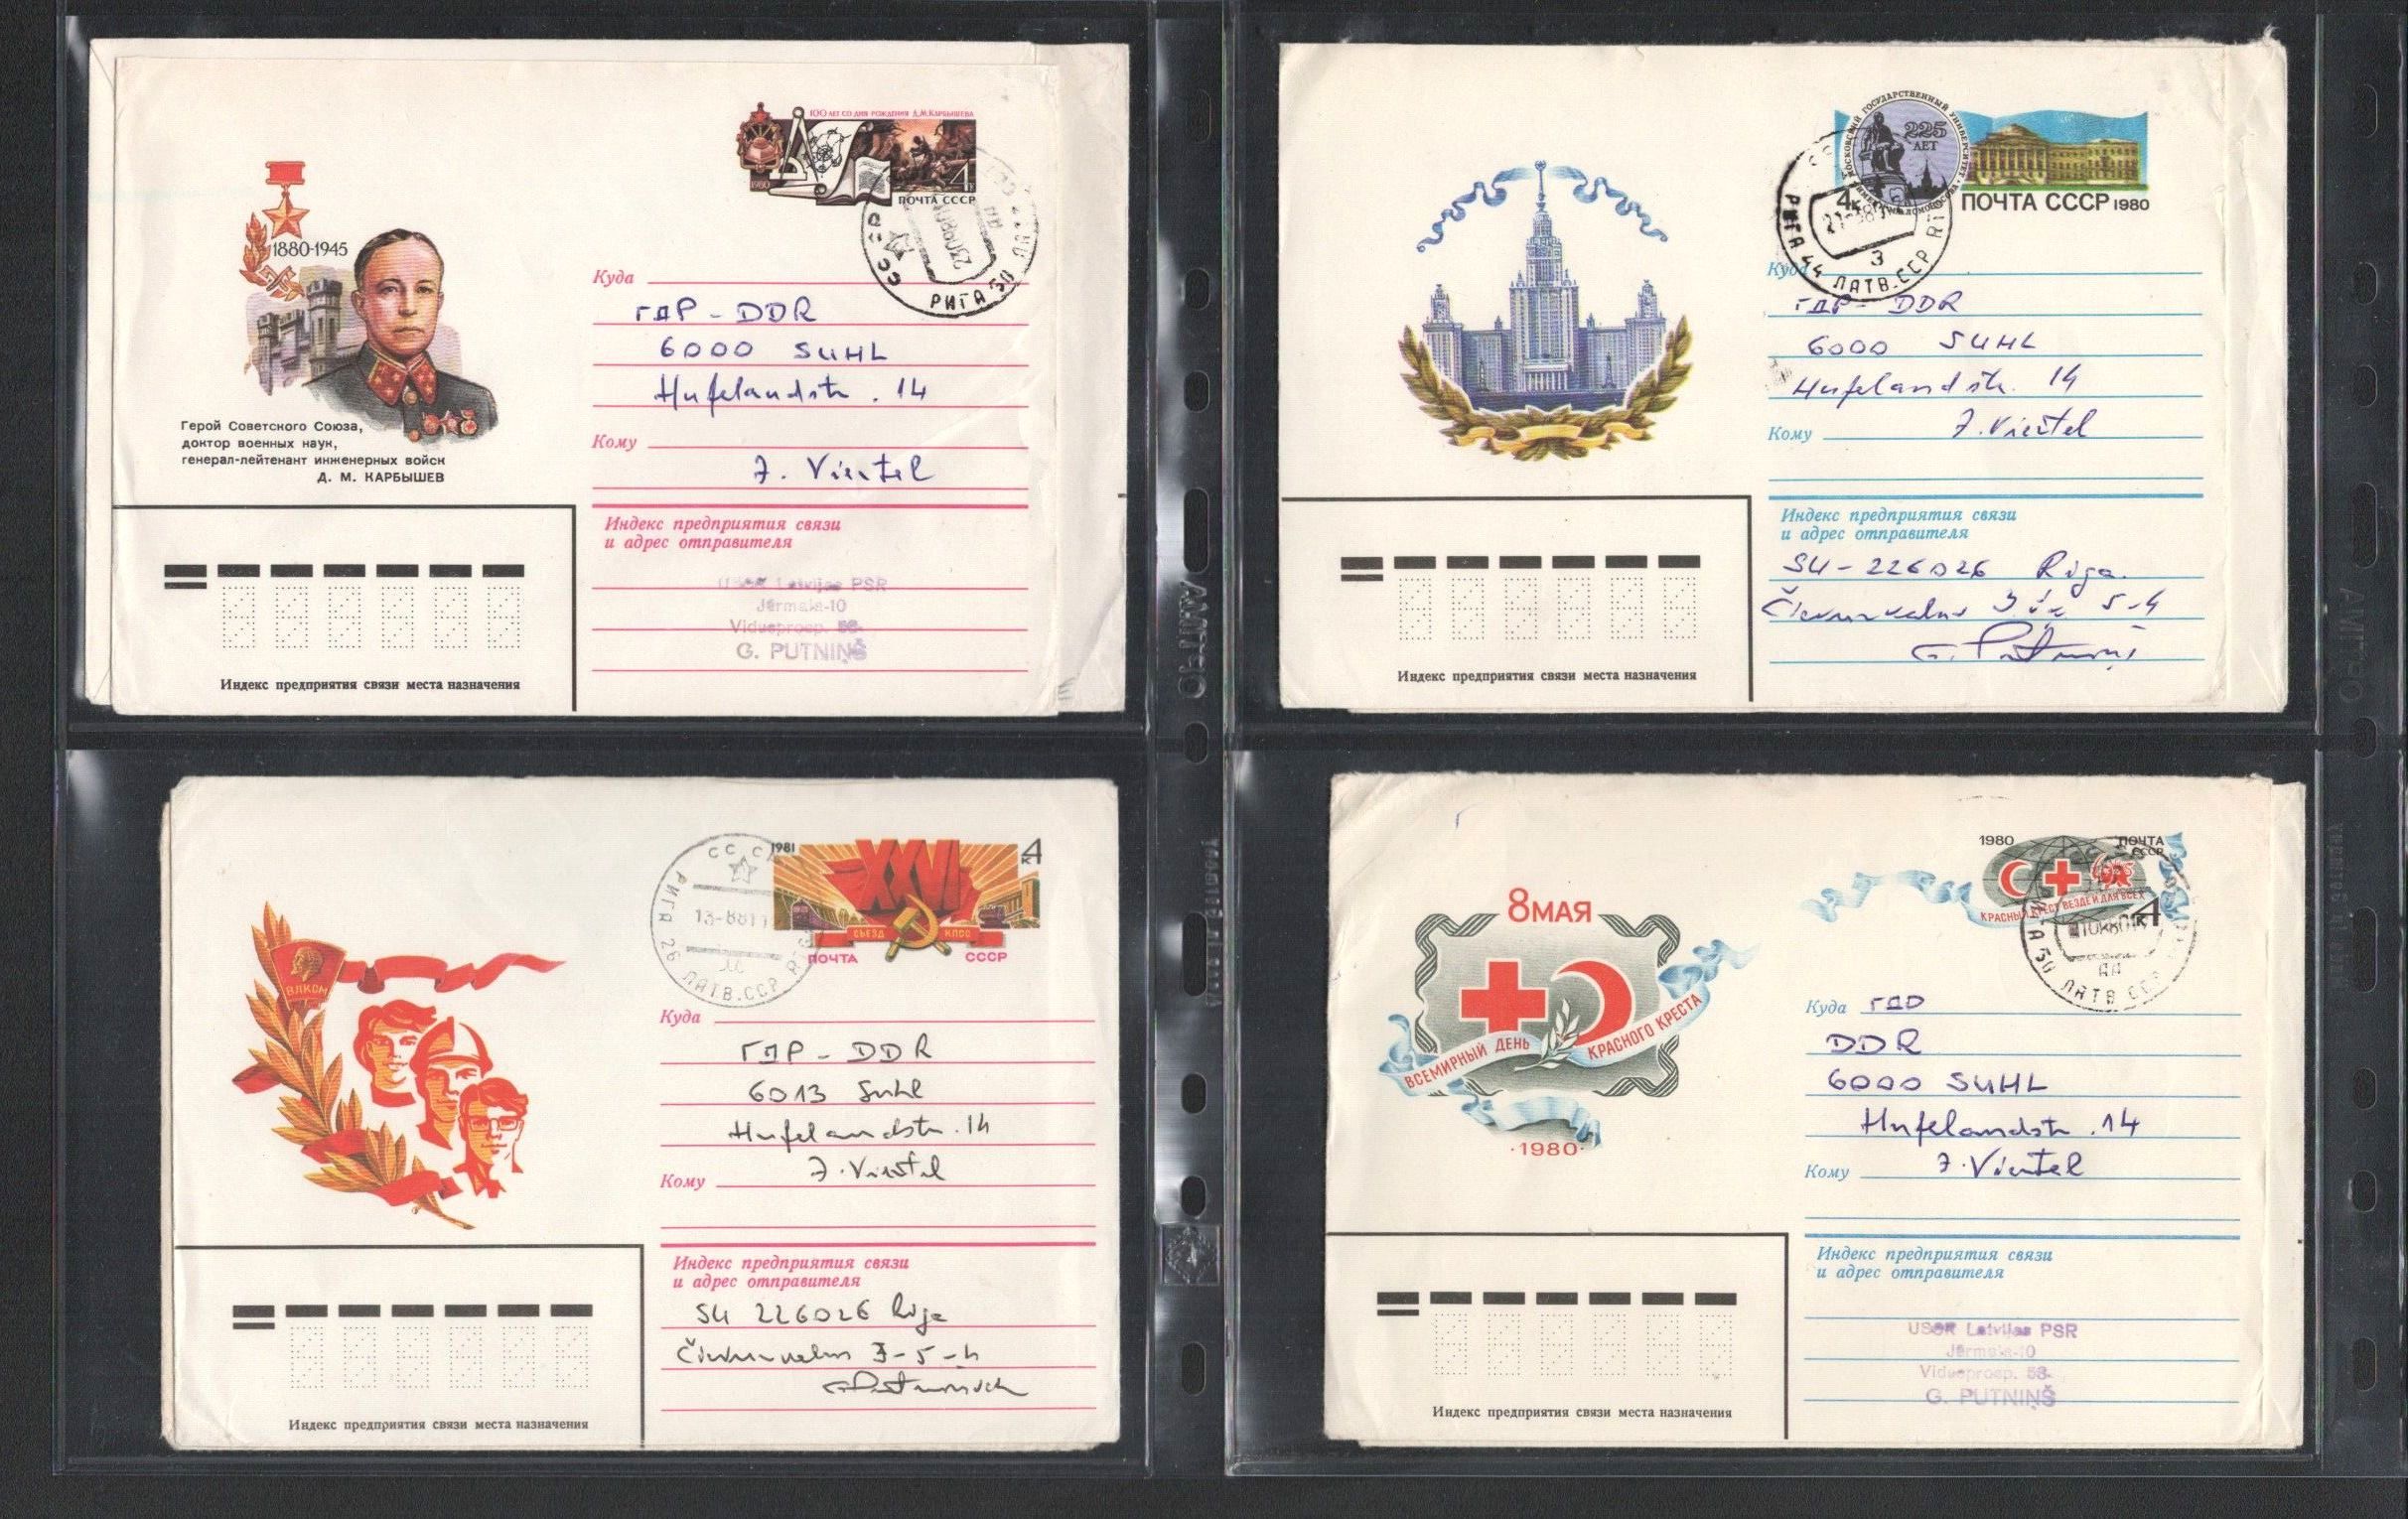 1880-1945
Герой Советского Союза,
доктор военных наук,
генерал-лейтенант инженерных войск
Д. М. КАРБЫШЕВ
100 ЛЕТ СО ДНЯ РОЖДЕНИЯ Д.М.КАРБЫШЕВА
1980
4к
ПОЧТА СССР
СССР
РИГА 50
Куда
ГДР - DDR
6000 SUHL
Hufelandstr. 14
Кому
J. Viertel
Индекс предприятия связи
и адрес отправителя
Latvijas PSR
Jūrmala-10
Vidusprosp.
G. PUTNIŅŠ
Индекс предприятия связи места назначения
МОСКОВСКИЙ ГОСУДАРСТВЕННЫЙ УНИВЕРСИТЕТ
225
ЛЕТ
4к
ПОЧТА СССР 1980
РИГА 44 ЛАТВ.ССР
3
Куда
ГДР - DDR
6000 SUHL
Hufelandstr. 14
Кому J. Viertel
Индекс предприятия связи
и адрес отправителя
SU - 226026 Riga
5-4
G. Putniņš
Индекс предприятия связи места назначения
ВЛКСМ
1981
XXVI
4к
СЪЕЗД КПСС
ПОЧТА СССР
РИГА 26 ЛАТВ.ССР
13-881
Куда
ГДР - DDR
6013 Suhl
Hufelandstr. 14
Кому J. Viertel
Индекс предприятия связи
и адрес отправителя
SU 226026 Riga
3-5-4
Индекс предприятия связи места назначения
8 МАЯ
ВСЕМИРНЫЙ ДЕНЬ КРАСНОГО КРЕСТА
·1980·
1980 ПОЧТА
СССР
КРАСНЫЙ КРЕСТ ВЕЗДЕ И ДЛЯ ВСЕХ
4к
РИГА 50 ЛАТВ.ССР
Куда
DDR
6000 SUHL
Hufelandstr. 14
Кому J. Viertel
Индекс предприятия связи
и адрес отправителя
Latvijas PSR
Jūrmala-10
Vidusprosp.
G. PUTNIŅŠ
Индекс предприятия связи места назначения